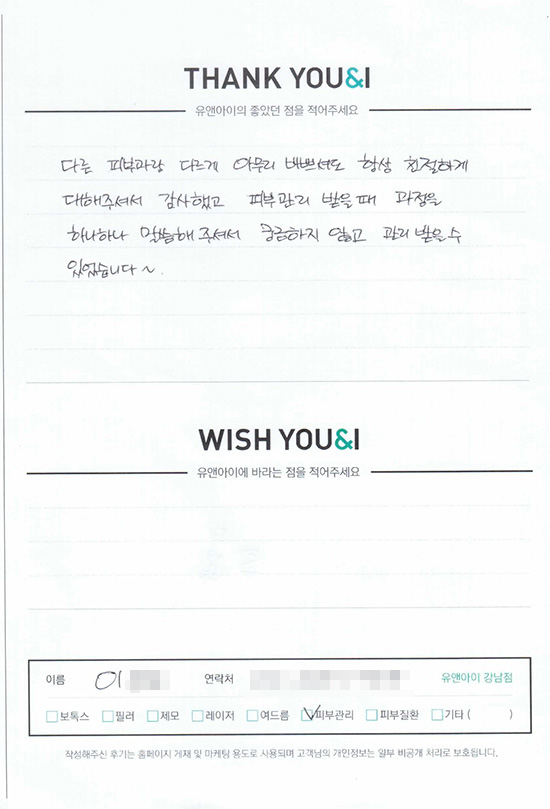 THANK YOU&I
유앤아이의 좋았던 점을 적어주세요
다른 피부과랑 다르게 아무리 바쁘셔도 항상 친절하게
대해주셔서 감사했고 피부관리 받을때 과정을
하나하나 말씀해 주셔서 궁금하지 않고 관리 받을 수
있었습니다~.
WISH YOU&I
유앤아이에 바라는 점을 적어주세요
이름 이 연락처 유앤아이 강남점
보톡스 필러 제모 레이저 여드름 피부관리 피부질환 기타 ( )
작성해주신 후기는 홈페이지 게재 및 마케팅 용도로 사용되며 고객님의 개인정보는 일부 비공개 처리로 보호됩니다.